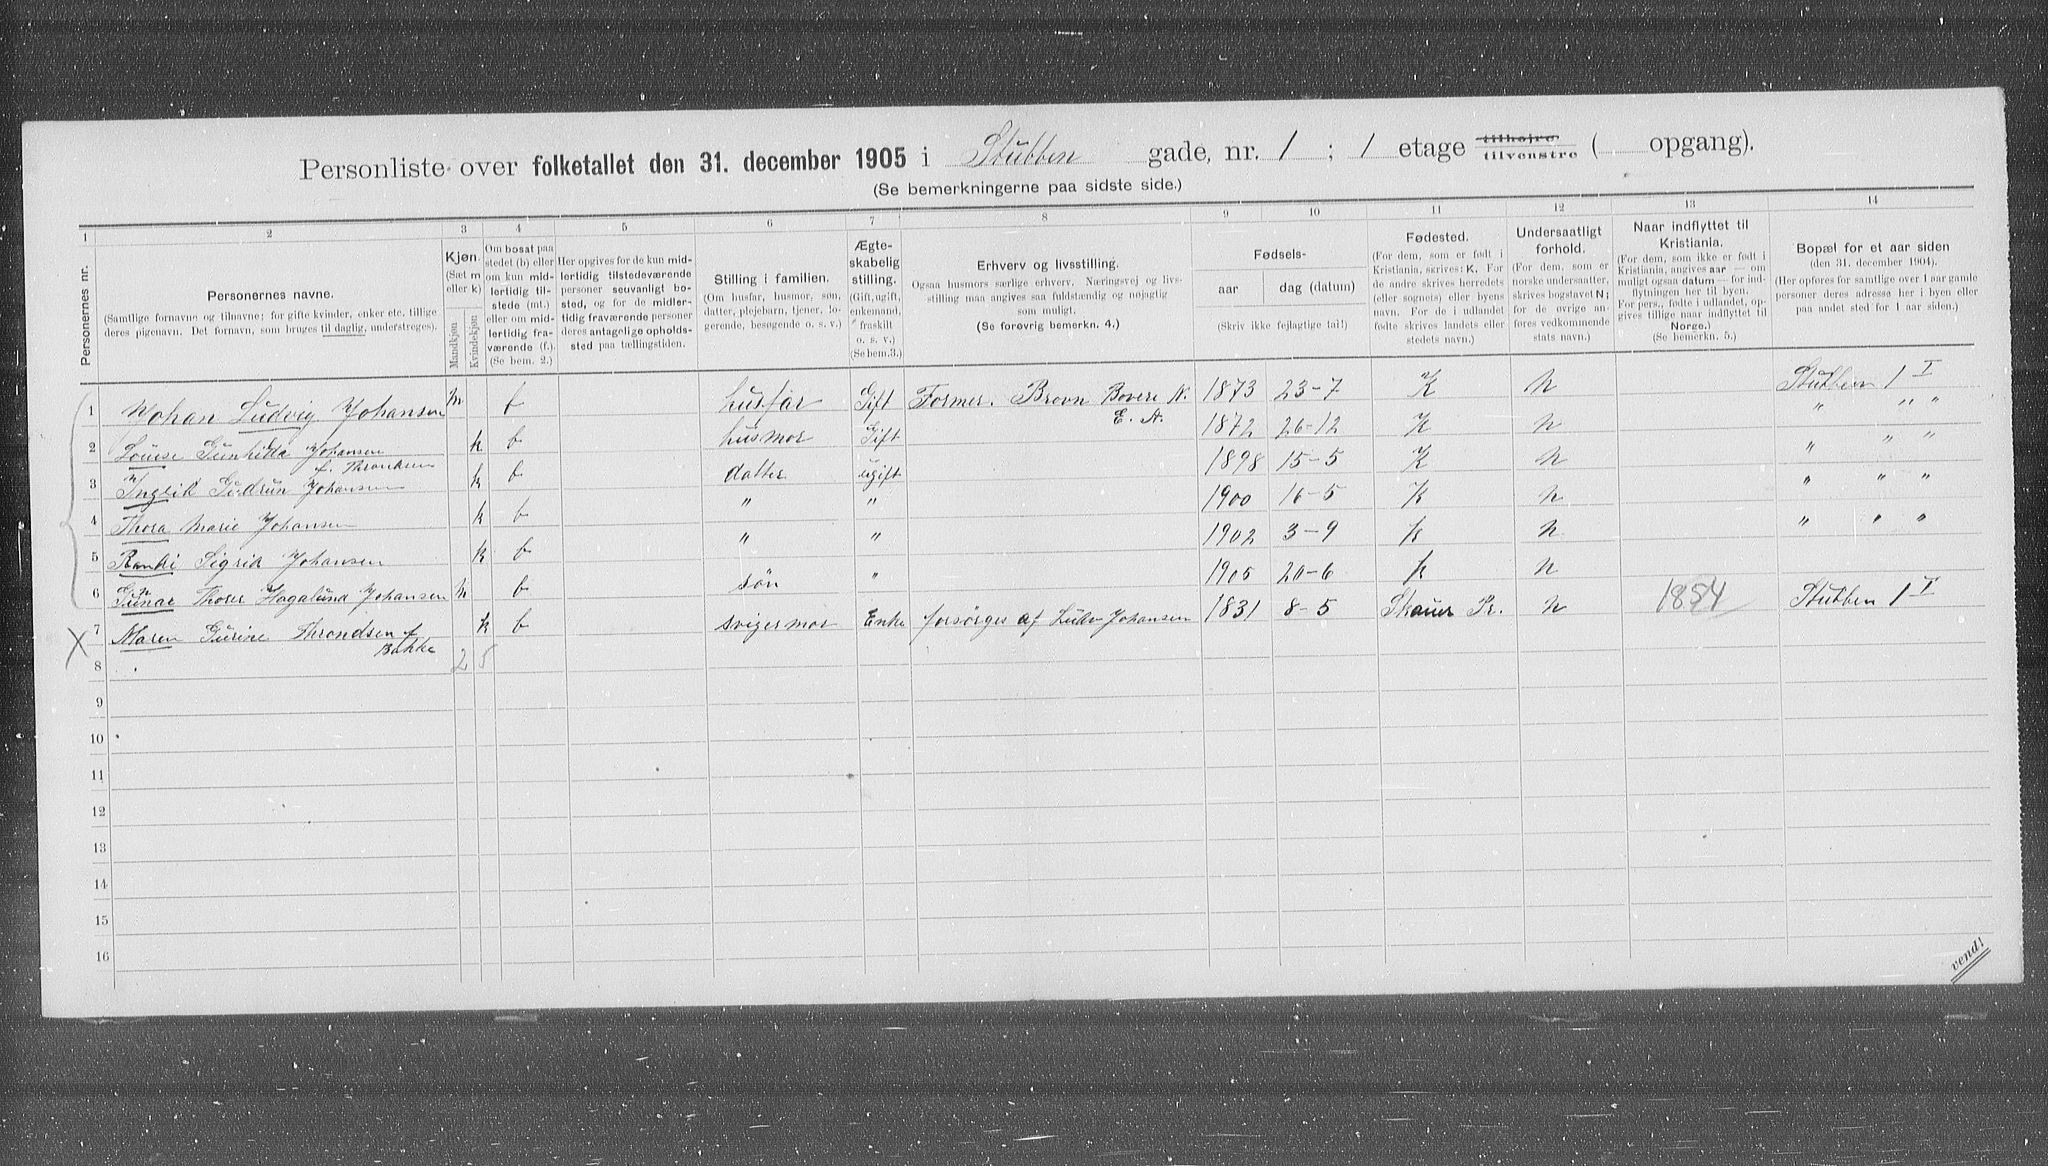 Personliste over folketallet den 31. december 1905 i Stubben gade, nr. 1 ; 1 etage tilhøjre tilvenstre ( opgang).
(Se bemerkningerne paa sidste side.)
1 2 3 4 5 6 7 8 9 10 11 12 13 14
Personernes nr.
Personernes navne.
(Samtlige fornavne og tilnavne; for gifte kvinder, enker etc. tillige
deres pigenavn. Det fornavn, som bruges til daglig, understreges).
Kjøn.
(Sæt m
eller k)
Mandkjøn
Kvindekjøn
Om bosat paa
stedet (b) eller
om kun mid-
lertidig til-
stede (mt.)
eller om mid-
lertidig fra-
værende (f.).
(Se bem. 2.)
Her opgives for de kun mid-
lertidig tilstedeværende
personer seuvanligt bo-
sted, og for de midler-
tidig fraværende personer
deres antagelige opholds-
sted paa tællingstiden.
Stilling i familien.
(Om husfar, husmor, søn,
datter, plejebarn, tjener, lo-
gerende, besøgende o. s. v.)
Ægte-
skabelig
stilling.
(Gift, ugift,
enkemand,
fraskilt
o. s. v.)
(Se bem. 3.)
Erhverv og livsstilling.
Ogsaa husmors særlige erhverv. Næringsvej og livs-
stilling maa angives saa fuldstændig og nøjagtig
som muligt.
(Se forøvrig bemerkn. 4.)
Fødsels-
aar
dag (datum)
(Skriv ikke fejlagtige tal!)
Fødested.
(For dem, som er født i
Kristiania, skrives: K. For
de andre skrives herredets
(eller sognets) eller byens
navn. For de i udlandet
fødte skrives landets eller
stedets navn.)
Undersaatligt
forhold.
(For dem, som er
norske undersaatter,
skrives bogstavet N;
for de øvrige an-
føres vedkommende
stats navn.)
Naar indflyttet til
Kristiania.
(For dem, som ikke er født i
Kristiania, angives aar — om
muligt ogsaa datum — for ind-
flytningen her til byen.
For pers., fødte i udlandet, op-
gives tillige naar indflyttet til
Norge.)
(Se bemerkn. 5.)
Bopæl for et aar siden
(den 31. december 1904).
(Her opføres for samtlige over 1 aar gamle
personer deres adresse her i byen eller
paa andet sted for 1 aar siden.)
1 Johan Ludvig Johansen m b husfar Gift Former. Brovn Bovere N. E. A. 1873 23-7 K N Stubben 1 I
2 Louise Gunhilda Johansen f. Throndsen k b husmor Gift 1872 26-12 K N " " "
3 Gudrun Johansen k b datter ugift 1898 15-5 K N " " "
4 Thora Marie Johansen k b " " 1900 16-5 K N " " "
5 Randi Sigrid Johansen k b " " 1902 3-9 K N " " "
6 Gunnar Thorer Hagalund Johansen m b søn " 1905 20-6 K N
7 Maren Gurine Throndsen f Bakke k b svigermor Enke forsørges af Ludv Johansen 1831 8-5 Skauer Pr. N 1854 Stubben 1 I
8 2 5
9
10
11
12
13
14
15
16
vend!